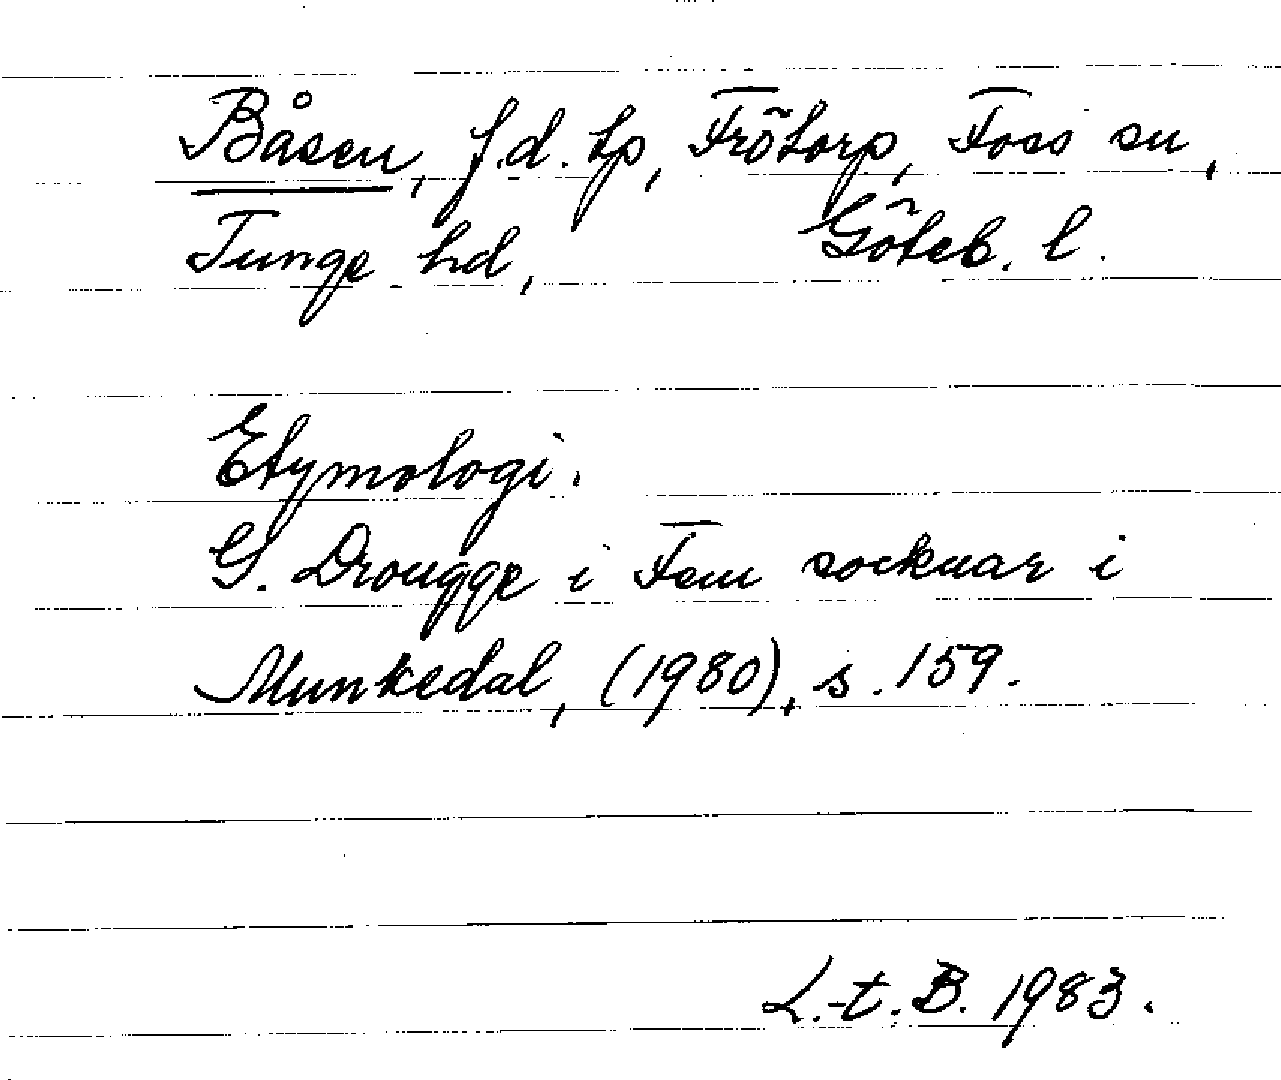 Båsen, f.d. tp, Frötorp, Foss sn,
Tunge hd, Göteb. l.
Etymologi.
G. Drougge i Fem socknar i
Munkedal, (1980), s. 159.
L.-t. B. 1983.